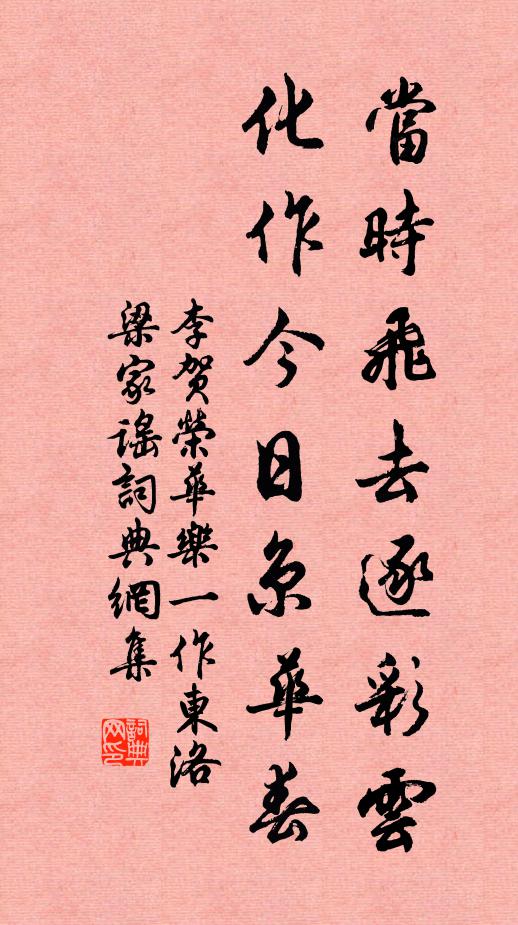 當時飛去逐彩雲
化作今日京華春
李賀榮華樂一作東洛
梁家謠詞典網集
詞典網印